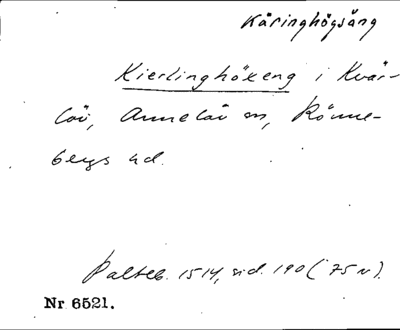 Käringhögsäng
Kierlinghökeng i Kvär-
löv, Annelöv sn, Rönne-
bergs hd.
Palteb. 1514, sid. 190 (75 v).
Nr 6521.